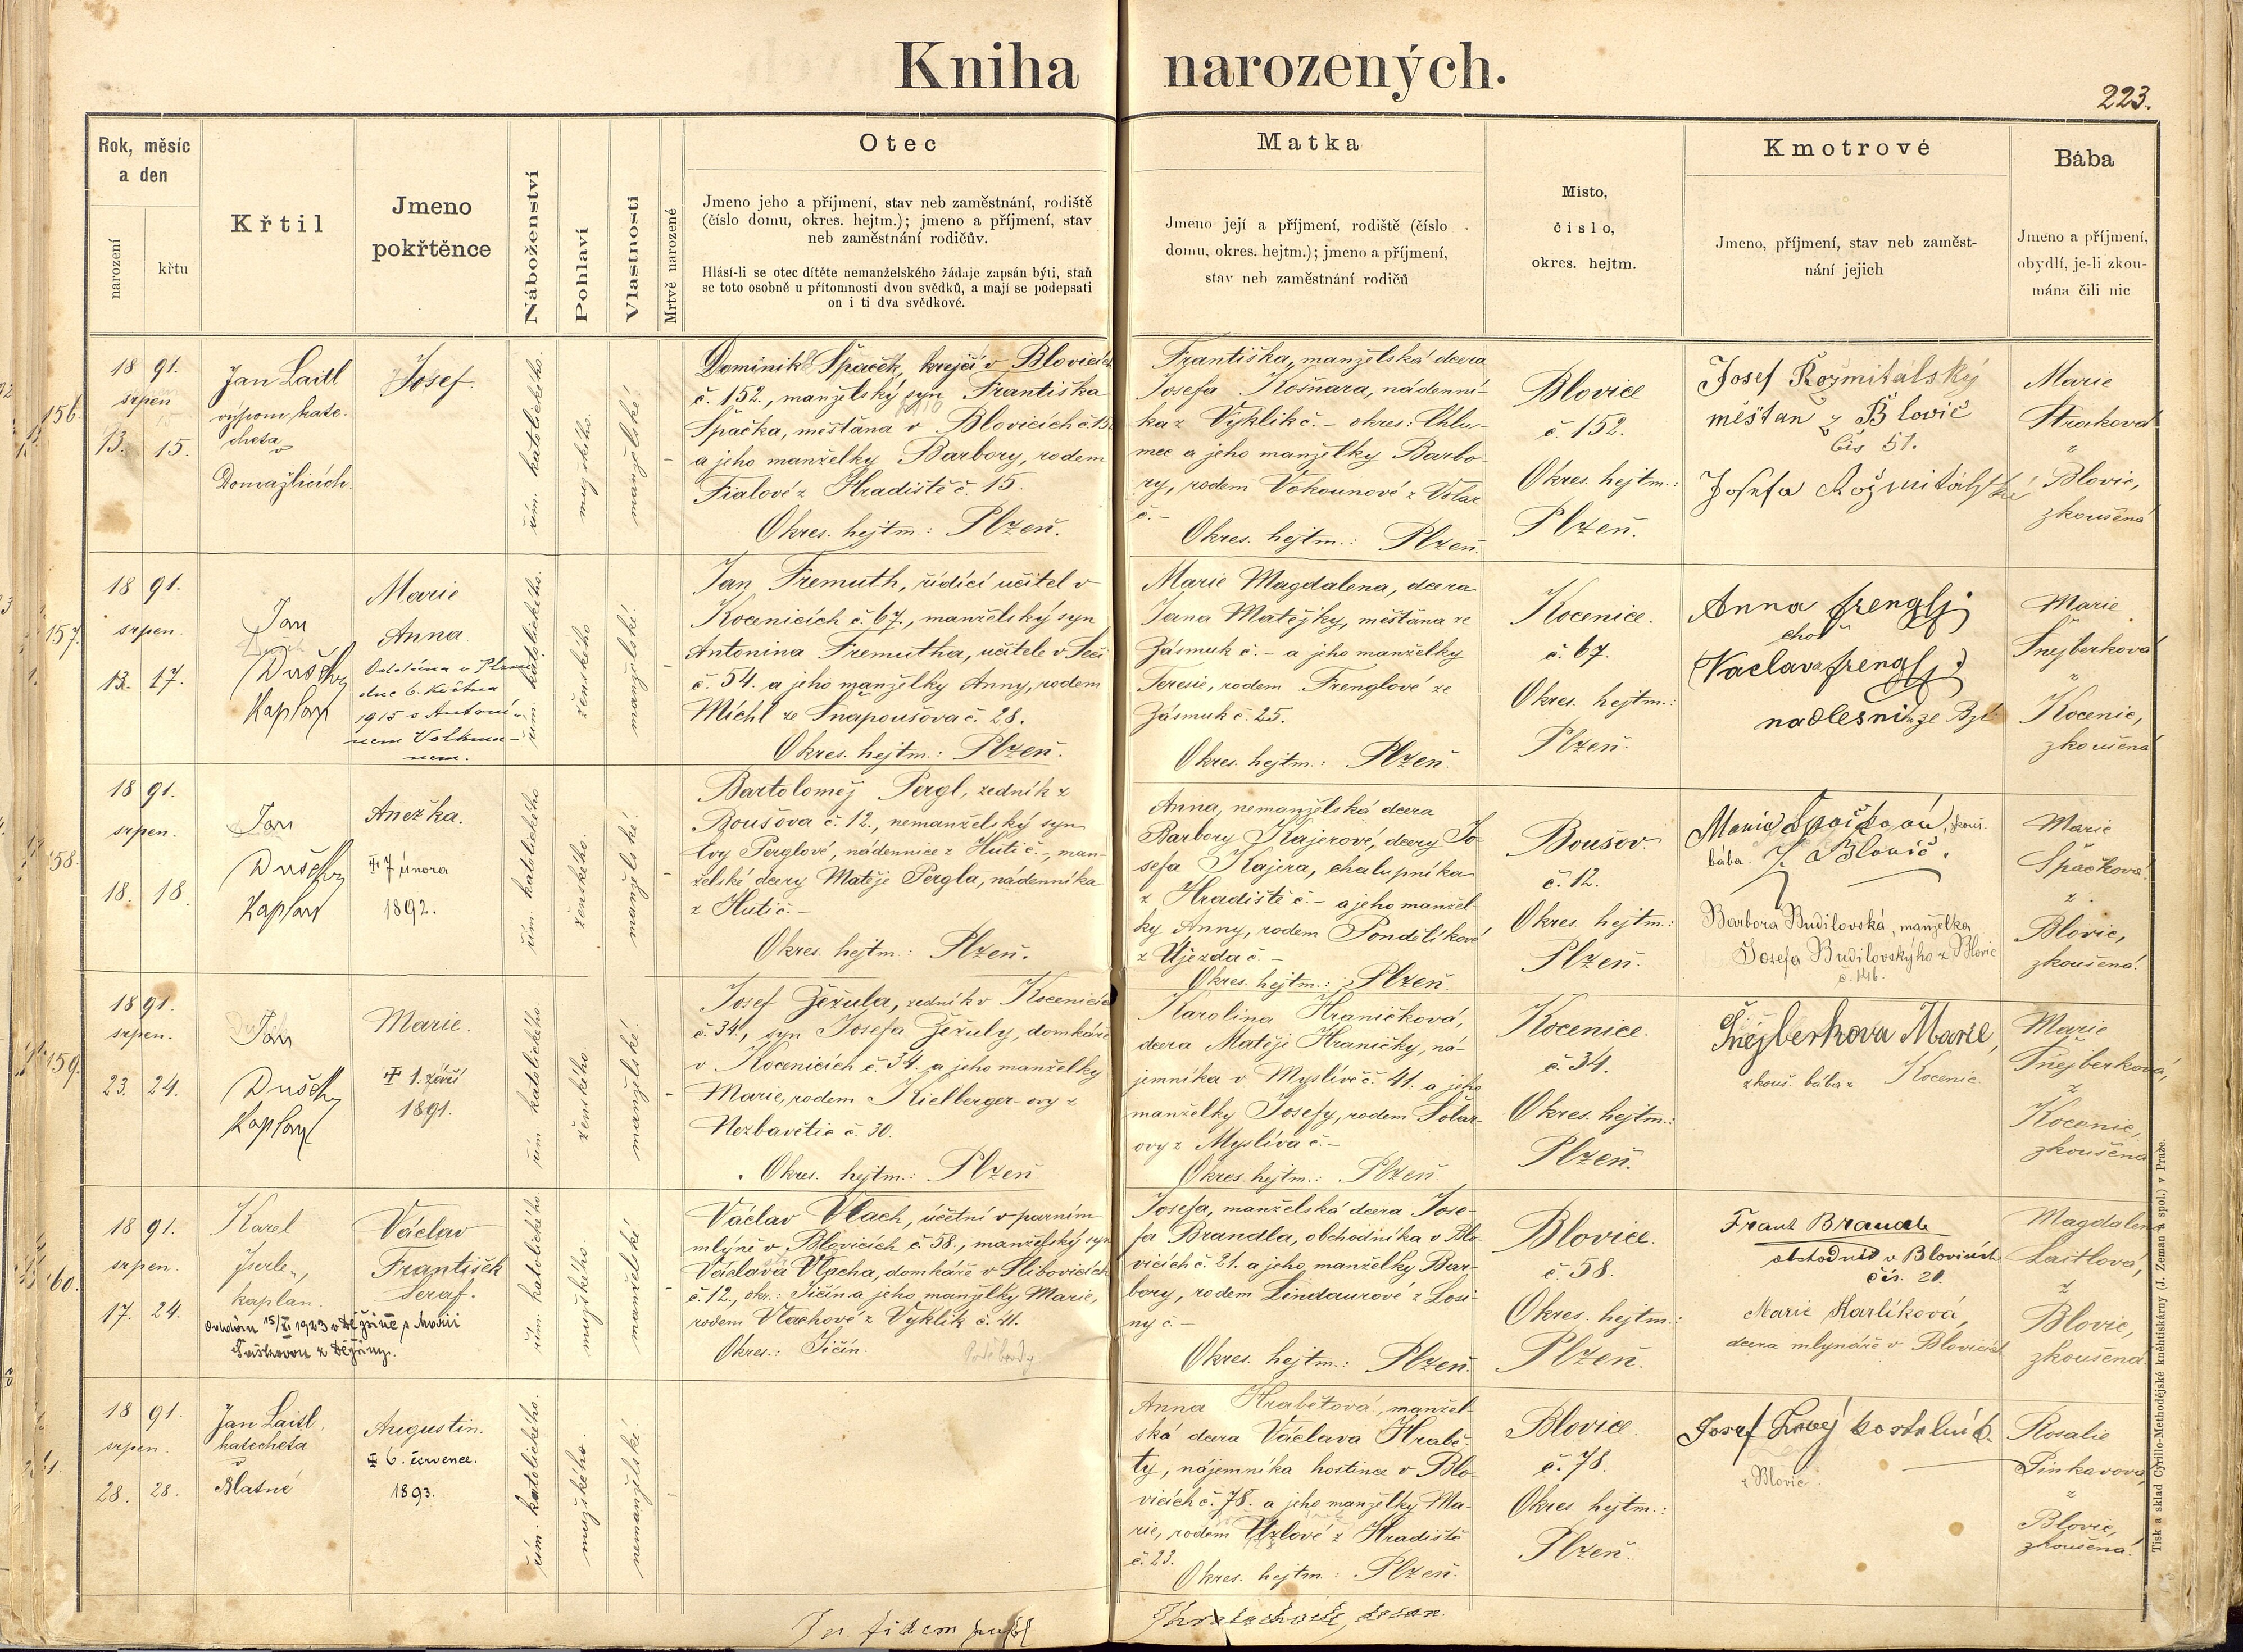 Kniha narozených.
223.
Rok, měsíc
a den
narození
křtu
Křtil
Jmeno
pokřtěnce
Náboženství
Pohlaví
Vlastnosti
Mrtvě narozené
Otec
Jmeno jeho a příjmení, stav neb zaměstnání, rodiště
(číslo domu, okres. hejtm.); jmeno a příjmení, stav
neb zaměstnání rodičův.
Hlásí-li se otec dítěte nemanželského žádaje zapsán býti, staň
se toto osobně u přítomnosti dvou svědků, a mají se podepsati
on i ti dva svědkové.
Matka
Jmeno její a příjmení, rodiště (číslo
domu, okres. hejtm.); jmeno a příjmení,
stav neb zaměstnání rodičů
Místo,
číslo,
okres. hejtm.
Kmotrové
Jmeno, příjmení, stav neb zaměst-
nání jejich
Bába
Jmeno a příjmení,
obydlí, je-li zkou-
mána čili nic
156.
1891.
srpen
13. 15.
Jan Laitl
výpom. kate-
cheta
v
Domažlicích.
Josef.
řím. katolického.
mužského.
manželské.
Dominik Špaček, krejčí v Blovicích
č. 152., manželský syn Františka
Špačka, měšťana v Blovicích č. 15
a jeho manželky Barbory, rodem
Fialové z Hradiště č. 15.
Okres. hejtm.: Plzeň.
Františka, manželská dcera
Josefa Košnara, nádenní-
ka z Vyklik č. - okres: Chlu-
mec a jeho manželky Barbo-
ry, rodem Vokounové z Volar
č. -
Okres. hejtm.: Plzeň.
Blovice
č. 152.
Okres. hejtm.:
Plzeň.
Josef Rožmitálský
měšťan z Blovic
čís 51.
Josefa Rožmitálská
Marie
Strakova
z
Blovic,
zkoušená
157.
1891.
srpen.
13. 17.
Jan
Dušek
Kaplan
Marie
Anna.
Oddána v Plzni
dne 6. května
1915 s Antoní-
nem Volkma-
nem.
řím. katolického.
ženského
manželské.
Jan Fremuth, řídící učitel v
Kocenicích č. 67., manželský syn
Antonína Fremutha, učitele v Seči
č. 54. a jeho manželky Anny, rodem
Míchl ze Snapoušova č. 28.
Okres. hejtm.: Plzeň.
Marie Magdalena, dcera
Jana Matějky, měšťana ze
Zásmuk č. - a jeho manželky
Teresie, rodem Frenglové ze
Zásmuk č. 25.
Okres. hejtm.: Plzeň.
Kocenice.
č. 67.
Okres. hejtm.:
Plzeň.
Anna Frengly
choť
Vaclava Frengly
nadlesního ze
Marie
Šnejberková
z
Kocenic,
zkoušená
158.
1891.
srpen.
18. 18.
Jan
Dušek
Kaplan
Anežka.
✝ 7 února
1892.
řím. katolického
ženského.
manželské.
Bartoloměj Pergl, zedník z
Boušova č. 12., nemanželský syn
Evy Perglové, nádennice z Hutí č. -, man-
želské dcery Matěje Pergla, nádenníka
z Hutí č. -
Okres. hejtm.: Plzeň.
Anna, nemanželská dcera
Barbory Kajerové, dcery Jo-
sefa Kajera, chalupníka
z Hradiště č. - a jeho manžel-
ky Anny, rodem Pondělíkové
z Újezda č. -
Okres. hejtm.: Plzeň.
Boušov.
č. 12.
Okres. hejtm.:
Plzeň.
Marie Špačková, zkouš.
bába z Blovic.
Barbora Budilovská, manželka
Josefa Budilovskýho z Blovic
č. 146.
Marie
Špačková
z
Blovic,
zkoušená.
159.
1891.
srpen.
23. 24.
Jan
Dušek
Kaplan
Marie.
✝ 1. září
1891.
řím. katolického.
ženského.
manželské.
Josef Žežula, zedník v Kocenicích
č. 34., syn Josefa Žežuly, domkáře
v Kocenicích č. 34. a jeho manželky
Marie, rodem Kielberger-ovy z
Nezbavětic č. 30.
Okres. hejtm.: Plzeň.
Karolina Hraničková,
dcera Matěje Hraničky, ná-
jemníka v Myslívě č. 41. a jeho
manželky Josefy, rodem Šolar-
ovy z Myslíva č. -
Okres. hejtm.: Plzeň.
Kocenice.
č. 34.
Okres. hejtm.:
Plzeň.
Šnejberkova Marie,
zkouš. bába z Kocenic.
Marie
Šnejberková,
z
Kocenic,
zkoušená
160.
1891.
srpen.
17. 24.
Karel
kaplan.
Oddán 15/XI 1923 v Dějšině s Marií
Taškovou z Dějšiny.
Václav
František
Seraf.
řím. katolického.
mužského.
manželské.
Václav Vlach, účetní v parním
mlýně v Blovicích č. 58., manželský syn
Václava Vlacha, domkáře v Slibovicích
č. 12., okr.: Jičín a jeho manželky Marie,
rodem Vlachové z Vyklik č. 41.
Okres.: Jičín.
Poděbrady
Josefa, manželská dcera Jose-
fa Brandla, obchodníka v Blo-
vicích č. 21. a jeho manželky Bar-
bory, rodem Lindaurové z Losi-
ny č -
Okres. hejtm.: Plzeň.
Blovice.
č. 58.
Okres. hejtm.:
Plzeň.
Frant Brandl
obchodník v Blovicích
čís. 21.
Marie Karlíková,
dcera mlynáře v Blovicích
Magdalena
Laitlová,
z
Blovic,
zkoušená.
161.
1891.
srpen.
28. 28.
Jan Laitl.
katecheta
v
Blatné
Augustin.
✝ 6. července.
1893.
řím. katolického.
mužského.
nemanželské.
Anna Hrabětová, manžel-
ská dcera Václava Hrabě-
ty, nájemníka hostince v Blo-
vicích č. 78. a jeho manželky Ma-
rie, rodem Uzlové z Hradiště
č. 23.
Okres. hejtm.: Plzeň.
Blovice.
č. 78.
Okres. hejtm.:
Plzeň.
Josef kostelník.
z Blovic.
Rosalie
Pinkavova,
z
Blovic,
zkoušená.
In fidem
děkan.
Tisk a sklad Cyrillo-Methodějské kněhtiskárny (J. Zeman a spol.) v Praze.